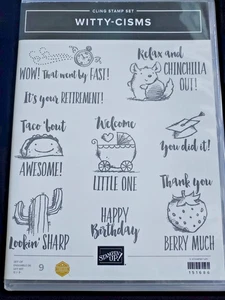 CLING STAMP SET
WITTY-CISMS
WOW! That went by FAST!
Relax and
CHINCHILLA
OUT!
It's your RETIREMENT!
Taco 'bout
AWESOME!
Welcome
LITTLE ONE
You did it!
Lookin' SHARP
HAPPY
Birthday
Thank you
BERRY MUCH
9
STAMPIN' UP!
151656